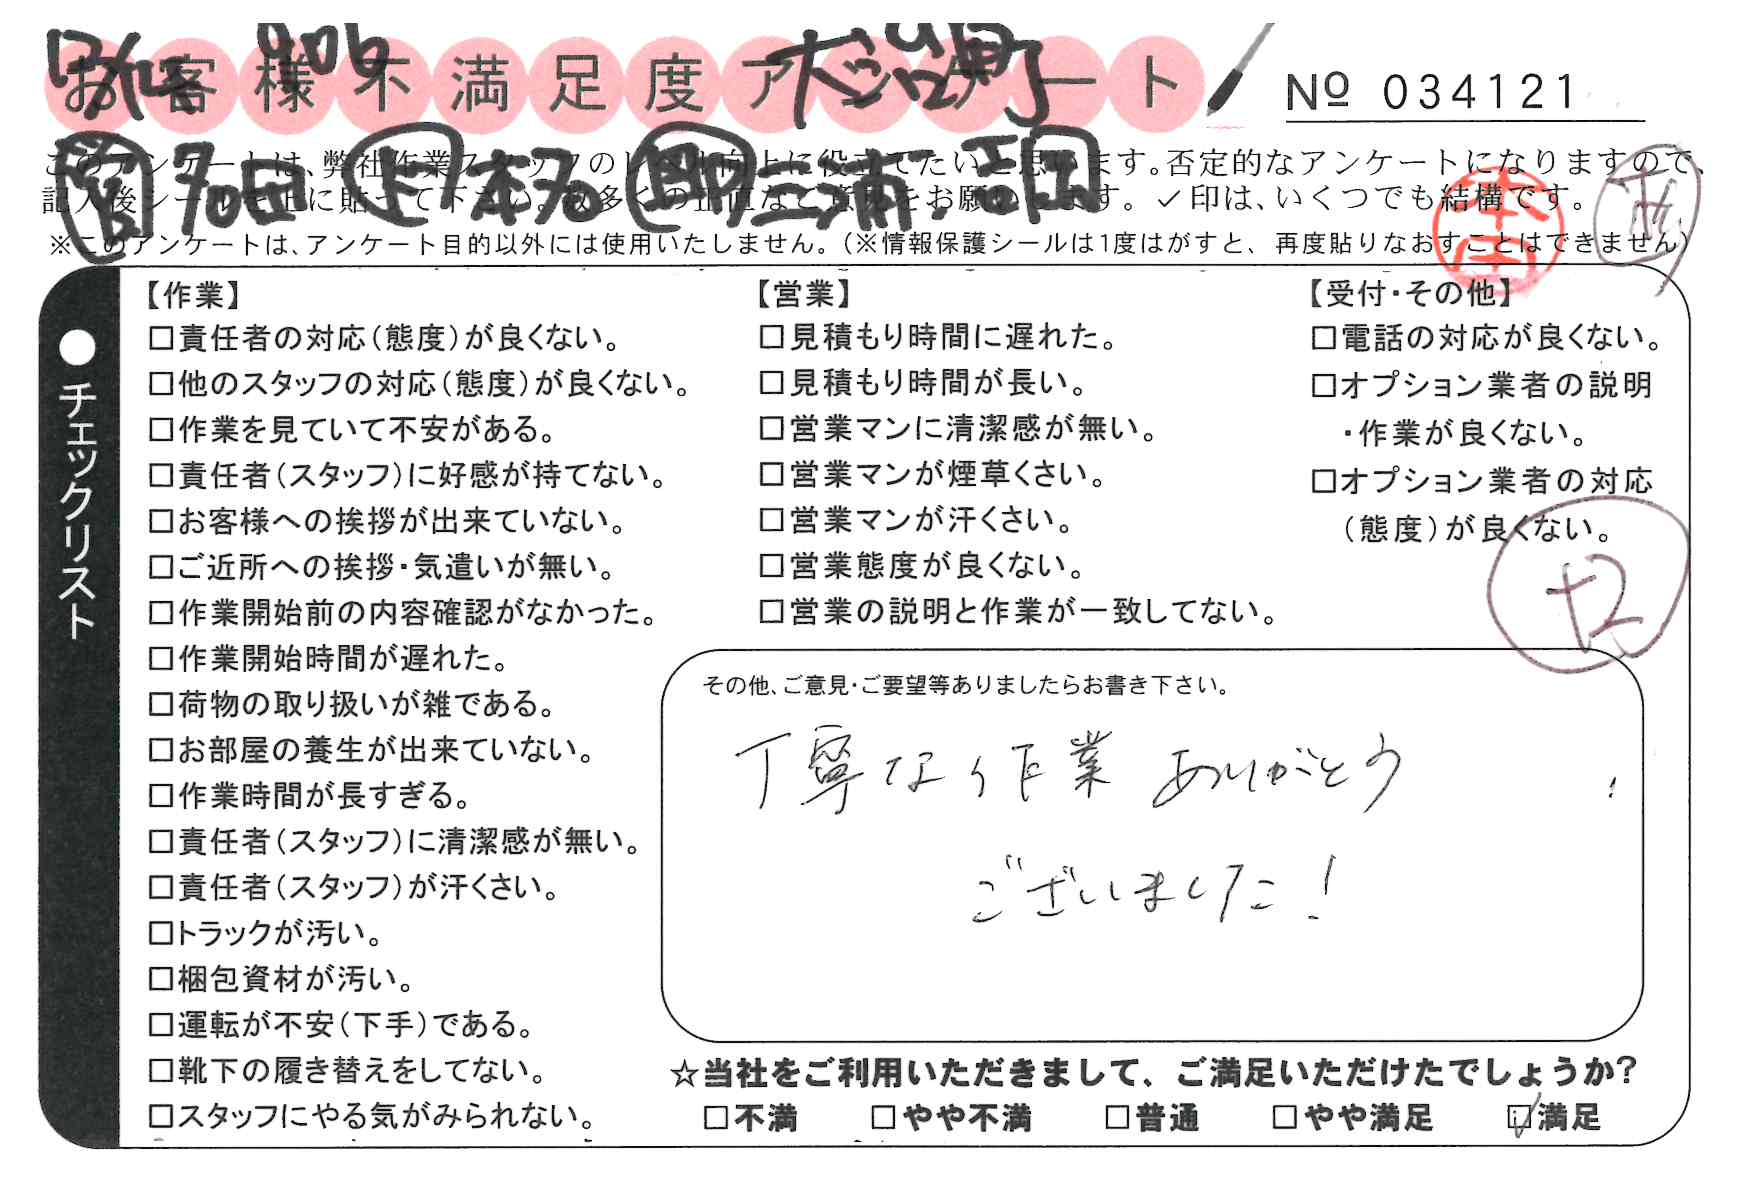 お客様不満足度アンケート
大治町
№ 034121
このアンケートは、弊社作業スタッフのレベル向上に役立てたいと思います。否定的なアンケートになりますので、
記入後シールを上に貼って下さい。数多くの正直なご意見をお願いします。✓印は、いくつでも結構です。
※このアンケートは、アンケート目的以外には使用いたしません。（※情報保護シールは1度はがすと、再度貼りなおすことはできません）
●チェックリスト
【作業】
□責任者の対応（態度）が良くない。
□他のスタッフの対応（態度）が良くない。
□作業を見ていて不安がある。
□責任者（スタッフ）に好感が持てない。
□お客様への挨拶が出来ていない。
□ご近所への挨拶・気遣いが無い。
□作業開始前の内容確認がなかった。
□作業開始時間が遅れた。
□荷物の取り扱いが雑である。
□お部屋の養生が出来ていない。
□作業時間が長すぎる。
□責任者（スタッフ）に清潔感が無い。
□責任者（スタッフ）が汗くさい。
□トラックが汚い。
□梱包資材が汚い。
□運転が不安（下手）である。
□靴下の履き替えをしてない。
□スタッフにやる気がみられない。
【営業】
□見積もり時間に遅れた。
□見積もり時間が長い。
□営業マンに清潔感が無い。
□営業マンが煙草くさい。
□営業マンが汗くさい。
□営業態度が良くない。
□営業の説明と作業が一致してない。
【受付・その他】
□電話の対応が良くない。
□オプション業者の説明
・作業が良くない。
□オプション業者の対応
（態度）が良くない。
その他、ご意見・ご要望等ありましたらお書き下さい。
丁寧な作業 ありがとう
ございました！
☆当社をご利用いただきまして、ご満足いただけたでしょうか？
□不満 □やや不満 □普通 □やや満足 ☑満足